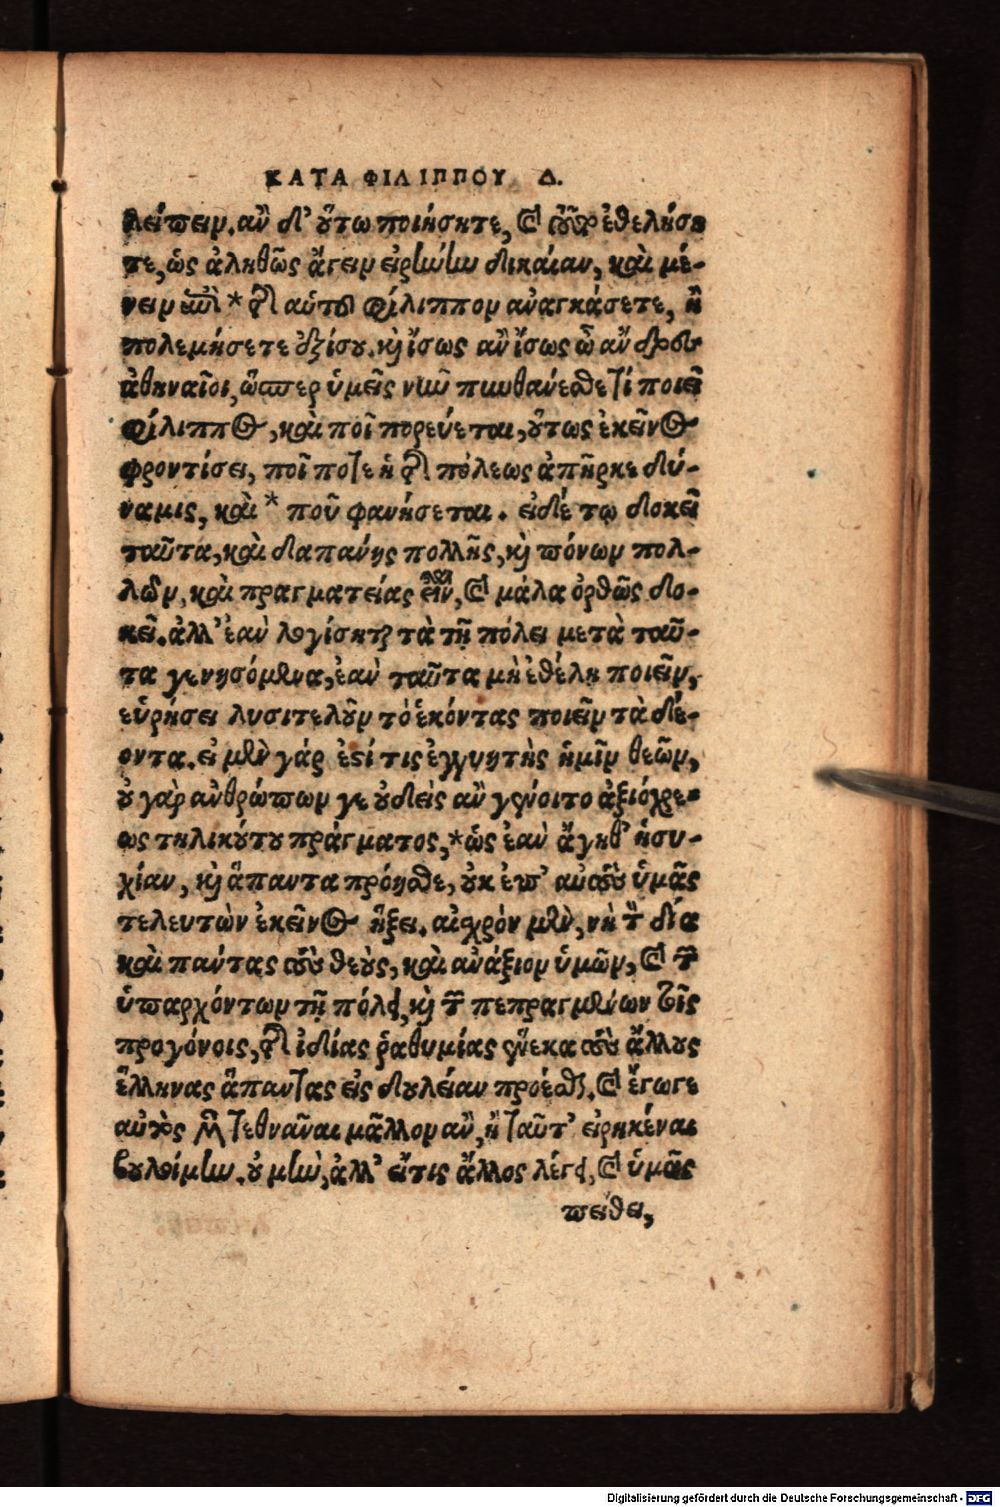 ΚΑΤΑ ΦΙΛΙΠΠΟΥ Δ.
λείπειν. ἂν δ' οὕτω ποιήσητε, καὶ ἐθελήση
τε, ὡς ἀληθῶς ἄγειν εἰρήνην δικαίαν, καὶ μέ-
νειν ἐπὶ * τῆς αὑτοῦ φίλιππον ἀναγκάσετε, ἢ
πολεμήσετε ἐξίσου. κỳ ἴσως ἂν ἴσως ὦ ἄνδρες
ἀθηναῖοι, ὥσπερ ὑμεῖς νῦν πυνθάνεσθε τί ποιεῖ
φίλιππος, καὶ ποῖ πορεύεται, οὕτως ἐκεῖνος
φροντίσει, ποῖ ποτε ἡ τῆς πόλεως ἀπῆρκε δύ-
ναμις, καὶ * ποῦ φανήσεται. εἰ δέ τῳ δοκεῖ
ταῦτα, καὶ δαπάνης πολλῆς, καὶ πόνων πολ-
λῶν, καὶ πραγματείας εἶναι, καὶ μάλα ὀρθῶς δο-
κεῖ. ἀλλ' ἐὰν λογίσηται τὰ τῇ πόλει μετὰ ταῦ-
τα γενησόμενα, ἐὰν ταῦτα μὴ ἐθέλῃ ποιεῖν,
εὑρήσει λυσιτελοῦν τὸ ἑκόντας ποιεῖν τὰ δέ-
οντα. εἰ μὲν γάρ ἐστί τις ἐγγυητὴς ἡμῖν θεῶν,
οὐ γὰρ ἀνθρώπων γε οὐδεὶς ἂν γένοιτο ἀξιόχρε-
ως τηλικούτου πράγματος, * ὡς ἐὰν ἄγηθ' ἡσυ-
χίαν, καὶ ἅπαντα πρόησθε, οὐκ ἐπ' αὐτοὺς ὑμᾶς
τελευτῶν ἐκεῖνος ἥξει. αἰσχρὸν μὲν, νὴ τὸν δία
καὶ πάντας τοὺς θεοὺς, καὶ ἀνάξιον ὑμῶν, καὶ τῶν
ὑπαρχόντων τῇ πόλει, καὶ τῶν πεπραγμένων τοῖς
προγόνοις, τῆς ἰδίας ῥαθυμίας ἕνεκα τοὺς ἄλλους
ἕλληνας ἅπαντας εἰς δουλείαν προέσθαι, καὶ ἔγωγε
αὐτὸς μὲν τεθνᾶναι μᾶλλον ἂν, ἢ ταῦτ' εἰρηκέναι
βουλοίμην. οὐ μὴν, ἀλλ' εἴτις ἄλλος λέγει, καὶ ὑμᾶς
πείθει,
Digitalisierung gefördert durch die Deutsche Forschungsgemeinschaft - DFG